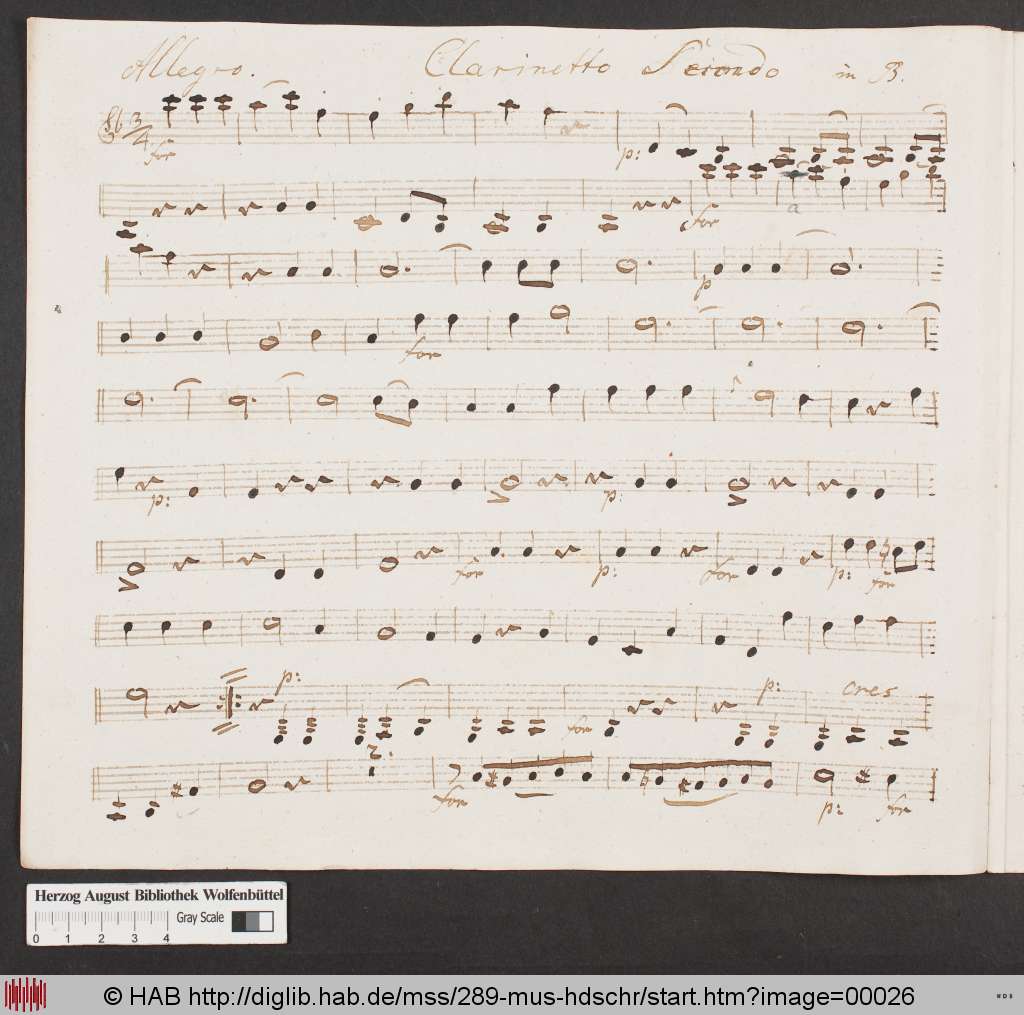 Allegro. Clarinetto Secondo in B.
3/4
for p:
for
a
p
for
p: p:
for p: for p: for
p: p: cres
for
2.
for p: for
Herzog August Bibliothek Wolfenbüttel
Gray Scale
0 1 2 3 4
© HAB http://diglib.hab.de/mss/289-mus-hdschr/start.htm?image=00026
WDB